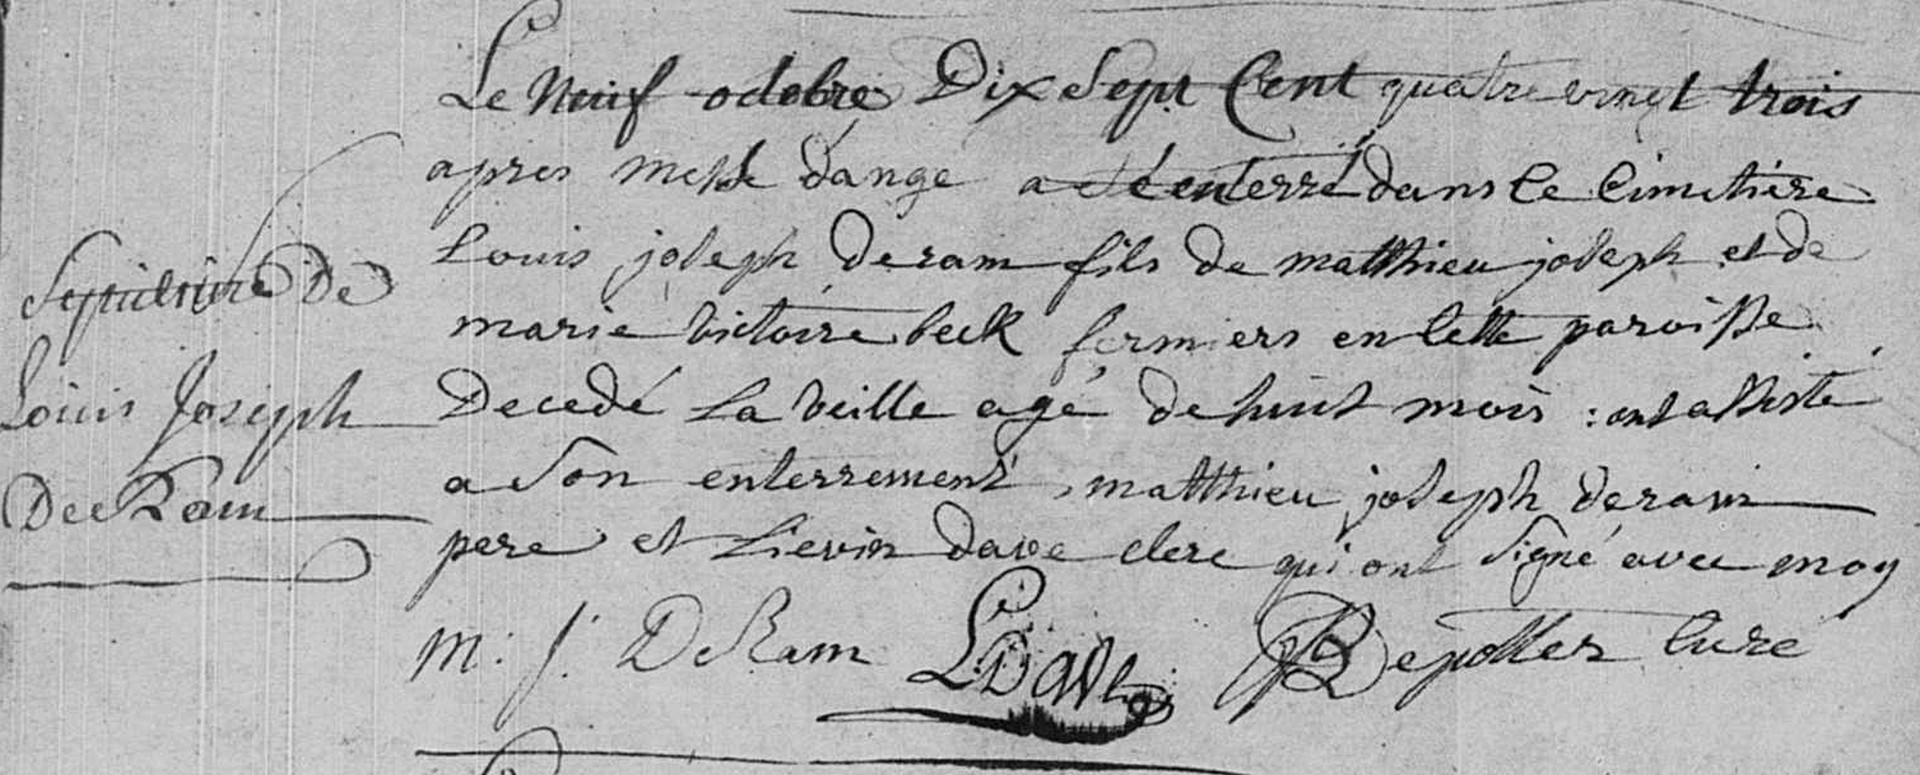 Sepulture De
Louis Joseph
DeeRam
Le Neuf octobre Dix Sept Cent quatre vingt trois
apres messe d'ange a été enterré dans le cimetière
Louis joseph deram fils de matthieu joseph et de
marie victoire beck fermiers en cette paroisse
Decedé la veille agé de huit mois : ont assisté
a son enterrement, matthieu joseph deram
pere et Lievin dave clerc qui ont signé avec moy
m: j: DeRam LDave curé